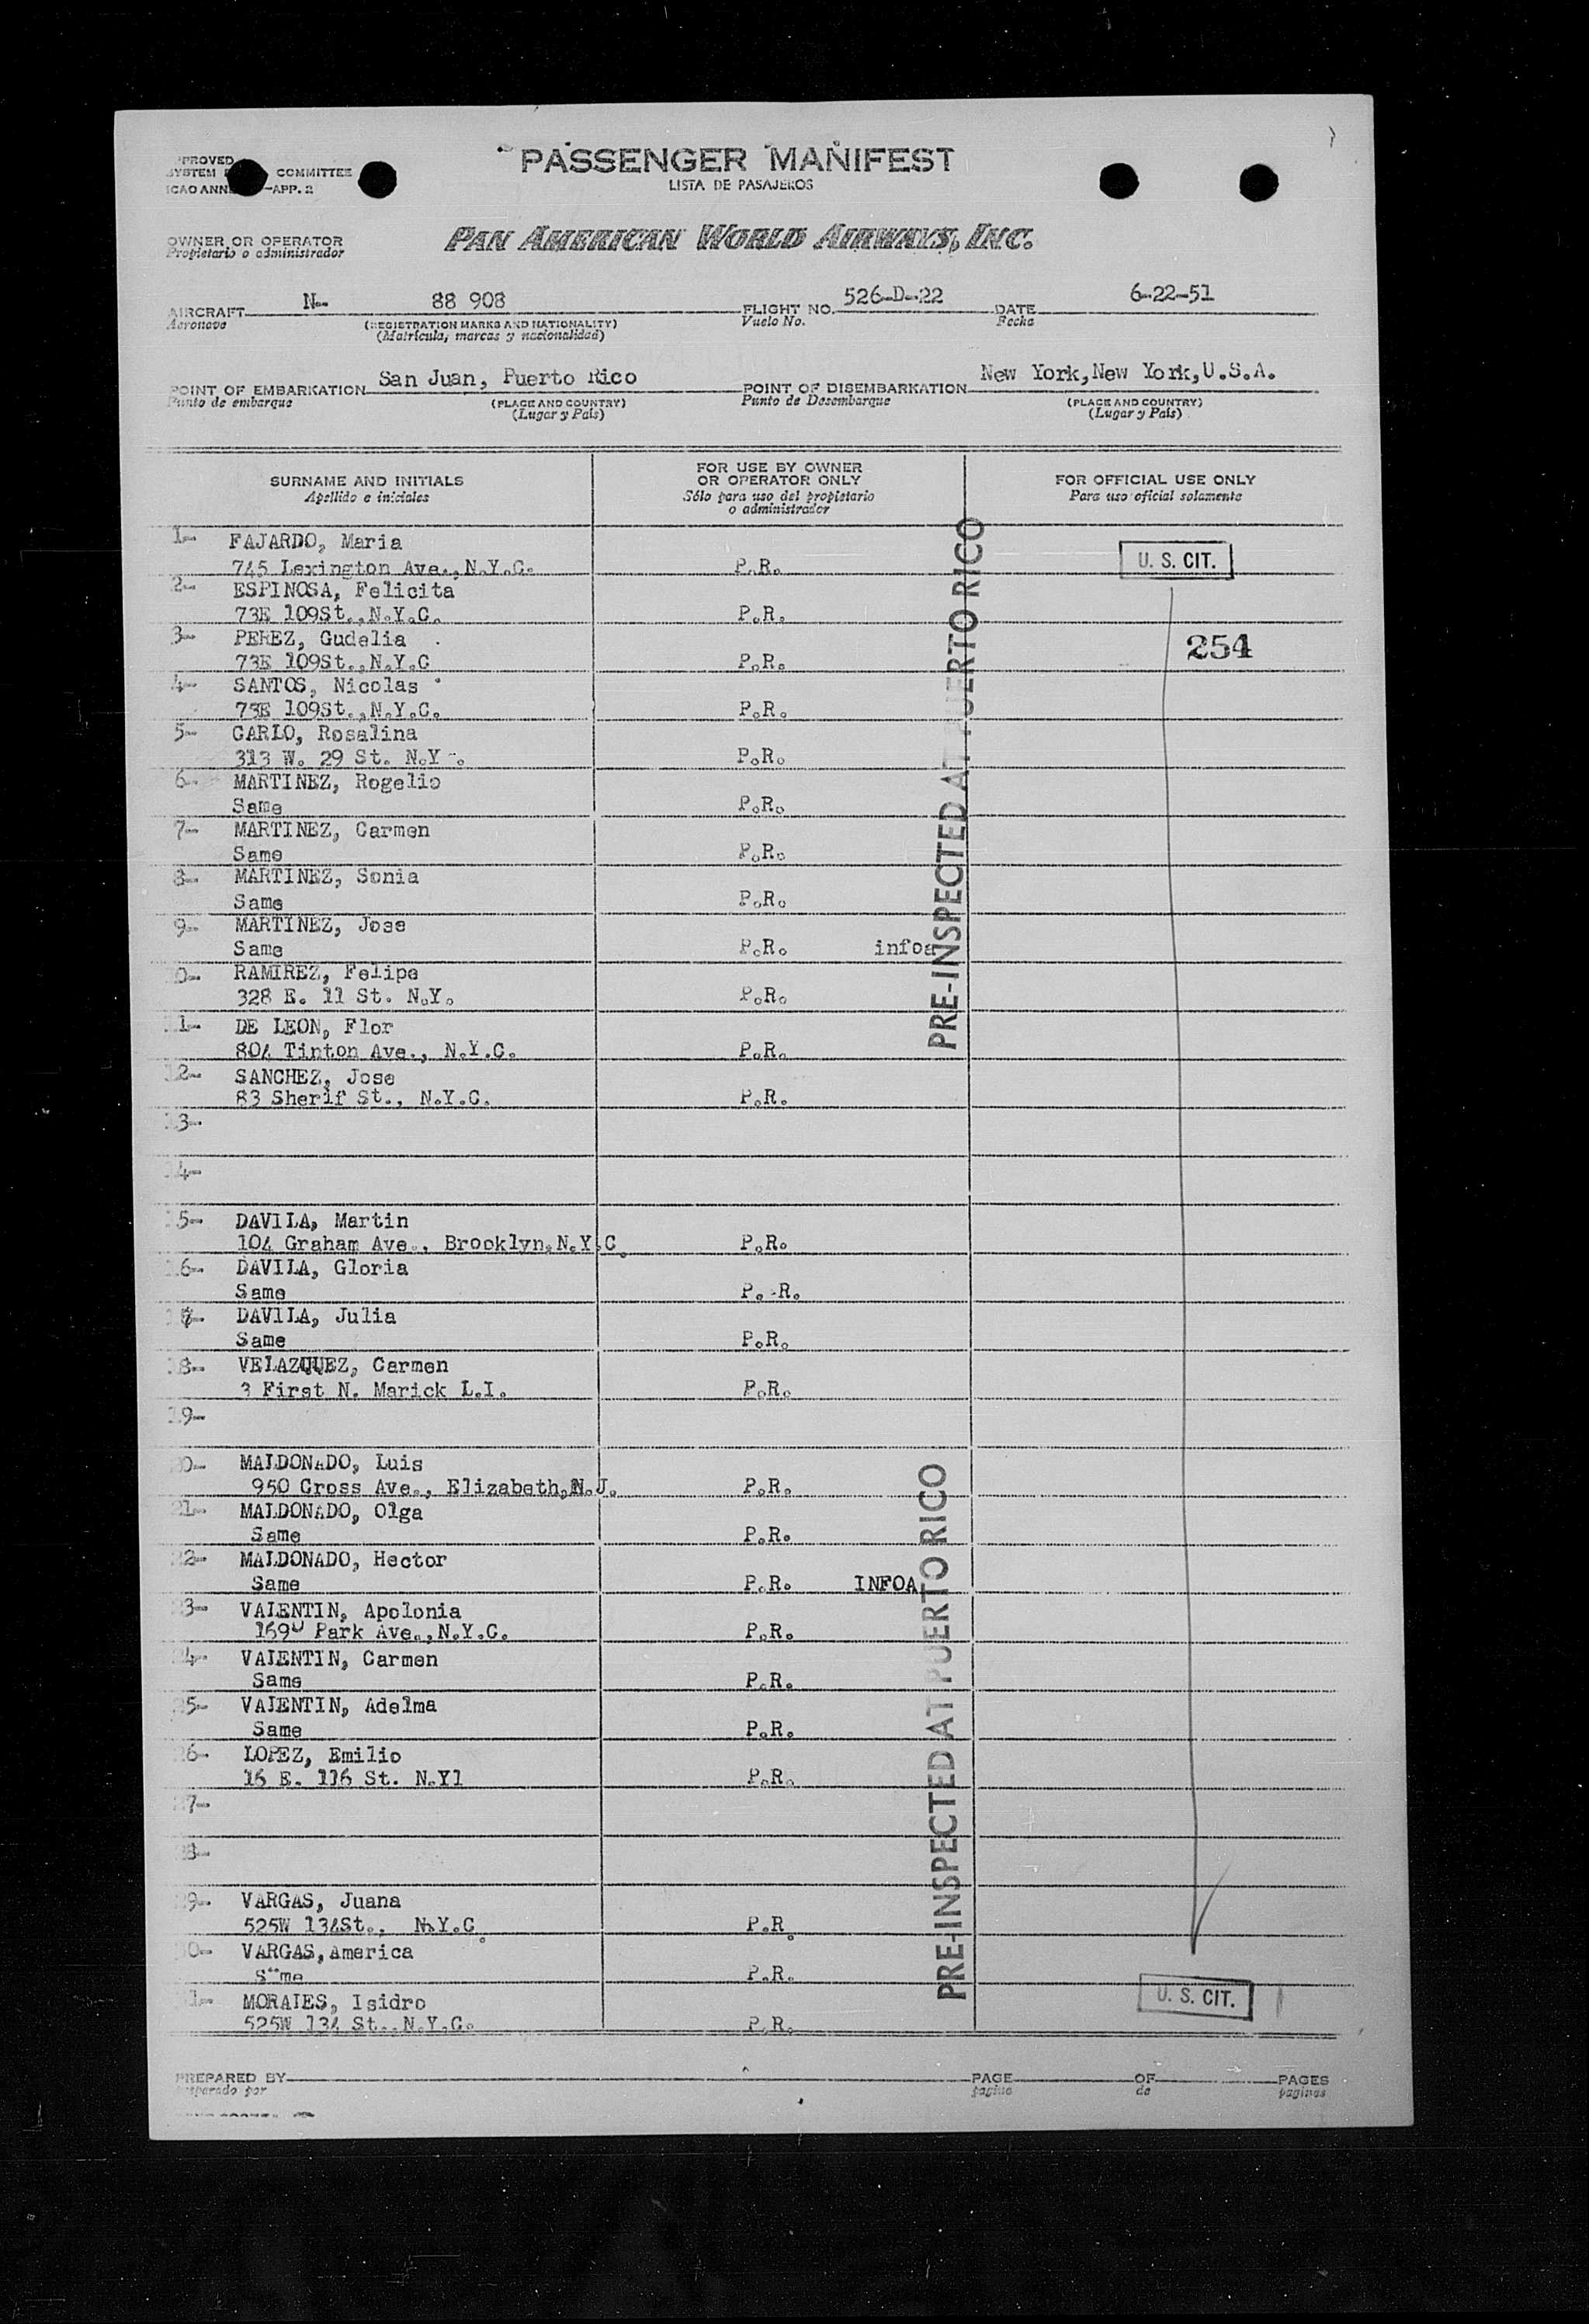 PASSENGER MANIFEST
LISTA DE PASAJEROS
PROVED
SYSTEM COMMITTEE
ICAO ANNE -APP. 2
PAN AMERICAN WORLD AIRWAYS, INC.
OWNER OR OPERATOR
Propietario o administrador
AIRCRAFT N- 88 908 FLIGHT NO. 526-D-22 DATE 6-22-51
Aeronave (REGISTRATION MARKS AND NATIONALITY) Vuelo No. Fecha
(Matricula, marcas y nacionalidad)
POINT OF EMBARKATION San Juan, Puerto Rico POINT OF DISEMBARKATION New York,New York,U.S.A.
Punto de embarque (PLACE AND COUNTRY) Punto de Desembarque (PLACE AND COUNTRY)
(Lugar y País) (Lugar y País)
SURNAME AND INITIALS
Apellido e iniciales
FOR USE BY OWNER
OR OPERATOR ONLY
Sólo para uso del propietario
o administrador
FOR OFFICIAL USE ONLY
Para uso oficial solamente
1- FAJARDO, Maria
745 Lexington Ave.,N.Y.C. P.R. U. S. CIT.
2- ESPINOSA, Felicita
73E 109St.,N.Y.C. P.R.
3- PEREZ, Gudelia 254
73E 109St.,N.Y.C P.R.
4- SANTOS, Nicolas
73E 109St.,N.Y.C. P.R.
5- CARLO, Rosalina
313 W. 29 St. N.Y . P.R.
6- MARTINEZ, Rogelio
Same P.R.
7- MARTINEZ, Carmen
Same P.R.
8- MARTINEZ, Sonia
Same P.R.
9- MARTINEZ, Jose
Same P.R. infoa
0- RAMIREZ, Felipe
328 E. 11 St. N.Y. P.R.
11- DE LEON, Flor
804 Tinton Ave., N.Y.C. P.R.
12- SANCHEZ, Jose
83 Sherif St., N.Y.C. P.R.
13-
14-
15- DAVILA, Martin
104 Graham Ave., Brooklyn,N.Y.C. P.R.
16- DAVILA, Gloria
Same P. R.
17- DAVILA, Julia
Same P.R.
18- VELAZQUEZ, Carmen
3 First N. Marick L.I. P.R.
19-
20- MALDONADO, Luis
950 Cross Ave., Elizabeth,N.J. P.R.
21- MALDONADO, Olga
Same P.R.
22- MALDONADO, Hector
Same P.R. INFOA
23- VALENTIN, Apolonia
1690 Park Ave.,N.Y.C. P.R.
24- VALENTIN, Carmen
Same P.R.
25- VALENTIN, Adelma
Same P.R.
26- LOPEZ, Emilio
16 E. 116 St. N.Y1 P.R.
27-
28-
29- VARGAS, Juana
525W 134St., N.Y.C. P.R.
30- VARGAS,America
Same P.R.
31- MORALES, Isidro
525W 134 St..N.Y.C. P.R. U. S. CIT.
PRE-INSPECTED AT PUERTO RICO
PRE-INSPECTED AT PUERTO RICO
PREPARED BY PAGE OF PAGES
Preparado por pagina de paginas